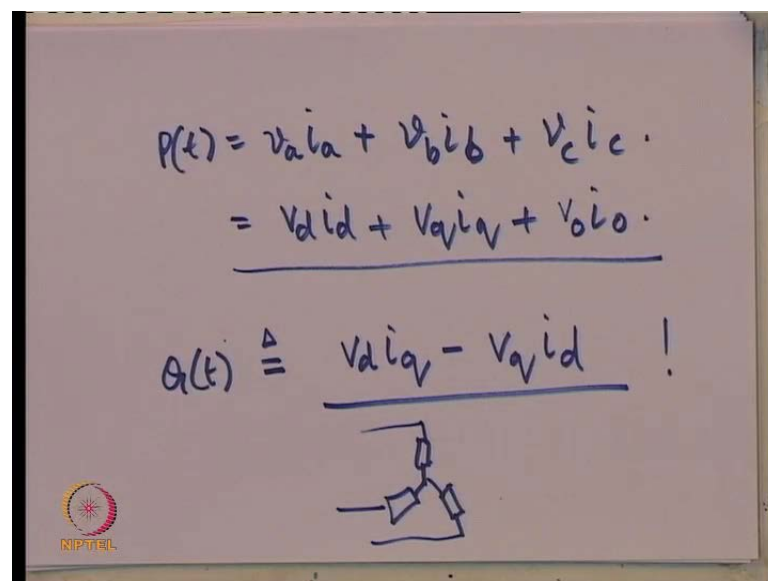 P(t) = vₐiₐ + v_b i_b + v_c i_c .
= v_d i_d + v_q i_q + v₀ i₀ .
Q(t) ≜ v_d i_q - v_q i_d !
NPTEL